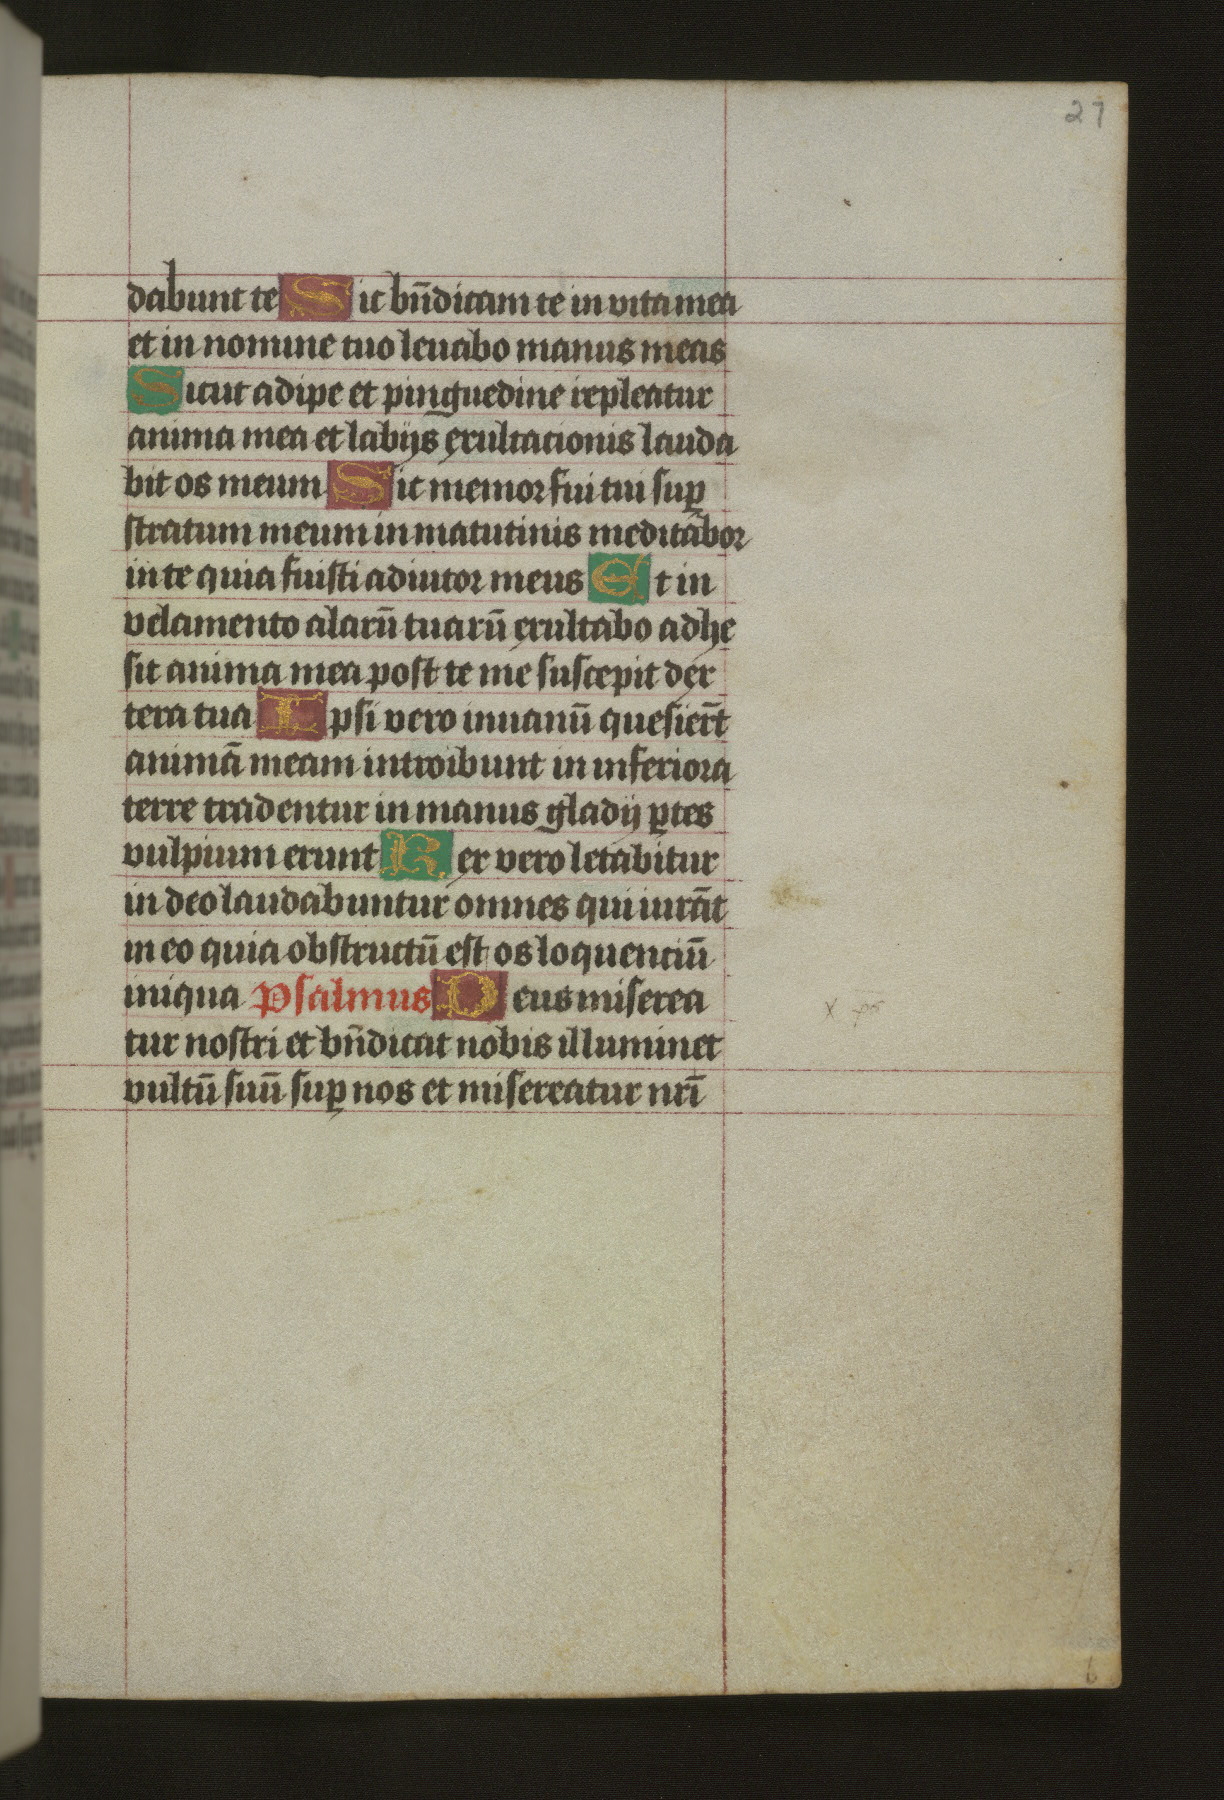 27
dabunt te Sic bn̄dicam te in vita mea
et in nomine tuo leuabo manus meas
Sicut adipe et pinguedine repleatur
anima mea et labijs exultacionis lauda
bit os meum Sic memor fui tui sup̱
stratum meum in matutinis meditabor
in te quia fuisti adiutor meus Et in
velamento alarū tuarū exultabo adhe
sit anima mea post te me suscepit dex
tera tua Ipsi vero inuanū quesier̄t
animā meam introibunt in inferiora
terre tradentur in manus gladij ꝑtes
vulpium erunt Rex vero letabitur
in deo laudabuntur omnes qui iurāt
in eo quia obstructū est os loquenciū
iniqua Psalmus Deus miserea
tur nostri et bn̄dicat nobis illuminet
vultū suū sup̱ nos et misereatur nr̄i